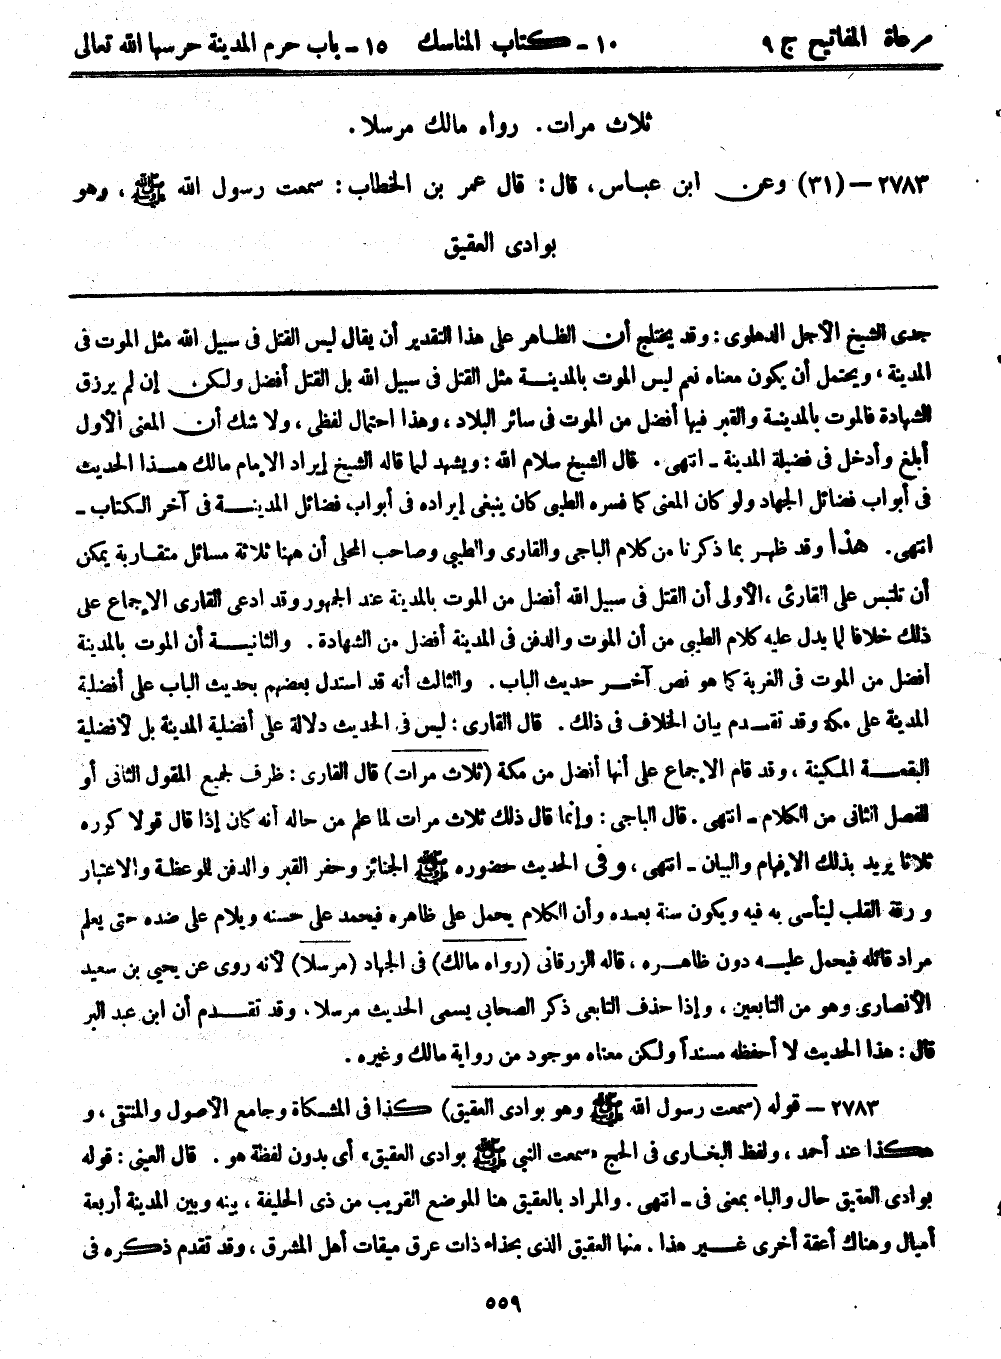 مرعاة المفاتيح ج ٩ ١٠ - كتاب المناسك ١٥ - باب حرم المدينة حرسها الله تعالى
ثلاث مرات. رواه مالك مرسلا.
٢٧٨٣ – (٣١) وعن ابن عباس، قال: قال عمر بن الخطاب: سمعت رسول الله ﷺ، وهو
بوادى العقيق
جدى الشيخ الأجل الدهلوى: وقد يختلج أن الظاهر على هذا التقدير أن يقال ليس القتل فى سبيل الله مثل الموت فى
المدينة، ويحتمل أن يكون معناه نعم ليس الموت بالمدينة مثل القتل فى سبيل الله بل القتل أفضل ولكن إن لم يرزق
الشهادة فالموت بالمدينة والقبر فيها أفضل من الموت فى سائر البلاد، وهذا احتمال لفظى، ولا شك أن المعنى الأول
أبلغ وأدخل فى فضيلة المدينة - انتهى. قال الشيخ سلام الله: ويشهد لما قاله الشيخ إيراد الإمام مالك هذا الحديث
فى أبواب فضائل الجهاد ولو كان المعنى كما فسره الطيبى كان ينبغى إيراده فى أبواب فضائل المدينة فى آخر الكتاب -
انتهى. هذا وقد ظهر بما ذكرنا من كلام الباجى والقارى والطيبى وصاحب المحلى أن ههنا ثلاثة مسائل متقاربة يمكن
أن تلتبس على القارئ، الأولى أن القتل فى سبيل الله أفضل من الموت بالمدينة عند الجمهور وقد ادعى القارى الإجماع على
ذلك خلافا لما يدل عليه كلام الطيبى من أن الموت والدفن فى المدينة أفضل من الشهادة. والثانية أن الموت بالمدينة
أفضل من الموت فى الغربة كما هو نص آخر حديث الباب. والثالث أنه قد استدل بعضهم بحديث الباب على أفضلية
المدينة على مكة وقد تقدم بيان الخلاف فى ذلك. قال القارى: ليس فى الحديث دلالة على أفضلية المدينة بل لأفضلية
البقعة المكينة، وقد قام الإجماع على أنها أفضل من مكة (ثلاث مرات) قال القارى: ظرف لجميع المقول الثانى أو
للفصل الثانى من الكلام - انتهى. قال الباجى: وإنما قال ذلك ثلاث مرات لما علم من حاله أنه كان إذا قال قولا كرره
ثلاثا يريد بذلك الإفهام والبيان - انتهى، وفى الحديث حضوره ﷺ الجنائز وحفر القبر والدفن للوعظة والاعتبار
ورقة القلب ليتأسى به فيه ويكون سنة بعده وأن الكلام يحمل على ظاهره فيحمد على حسنه ويلام على ضده حتى يعلم
مراد قائله فيحمل عليه دون ظاهره، قاله الزرقانى (رواه مالك) فى الجهاد (مرسلا) لأنه روى عن يحيى بن سعيد
الأنصارى وهو من التابعين، وإذا حذف التابعى ذكر الصحابى يسمى الحديث مرسلا. وقد تقدم أن ابن عبد البر
قال: هذا الحديث لا أحفظه مسنداً ولكن معناه موجود من رواية مالك وغيره.
٢٧٨٣ – قوله (سمعت رسول الله ﷺ وهو بوادى العقيق) كذا فى المشكاة وجامع الأصول والمنتقى، و
هكذا عند أحمد، ولفظ البخارى فى الحج «سمعت النبى ﷺ بوادى العقيق» أى بدون لفظة هو. قال العينى: قوله
بوادى العقيق حال والباء بمعنى فى - انتهى. والمراد بالعقيق هنا الموضع القريب من ذى الحليفة، بينه وبين المدينة أربعة
أميال وهناك أعقة أخرى غير هذا. منها العقيق الذى بحذاء ذات عرق ميقات أهل المشرق، وقد تقدم ذكره فى
٥٥٩